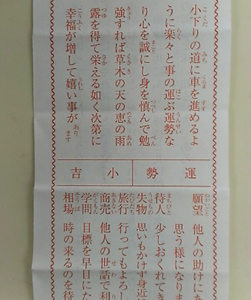 小下りの道に車を進めるよ
うに楽々と事の運ぶ運勢な
り心を誠にし身を慎んで勉
強すれば草木の天の恵の雨
露を得て栄える如く次第に
幸福が増して嬉い事が有ります
運勢小吉
願望 他人の助けに
思う様になり
待人 少しおくれてき
失物 思いもかけず身近
旅行 行ってもよろし
商売 他人の世話で利
学問 目標を早目にた
相場 時の来るのを待